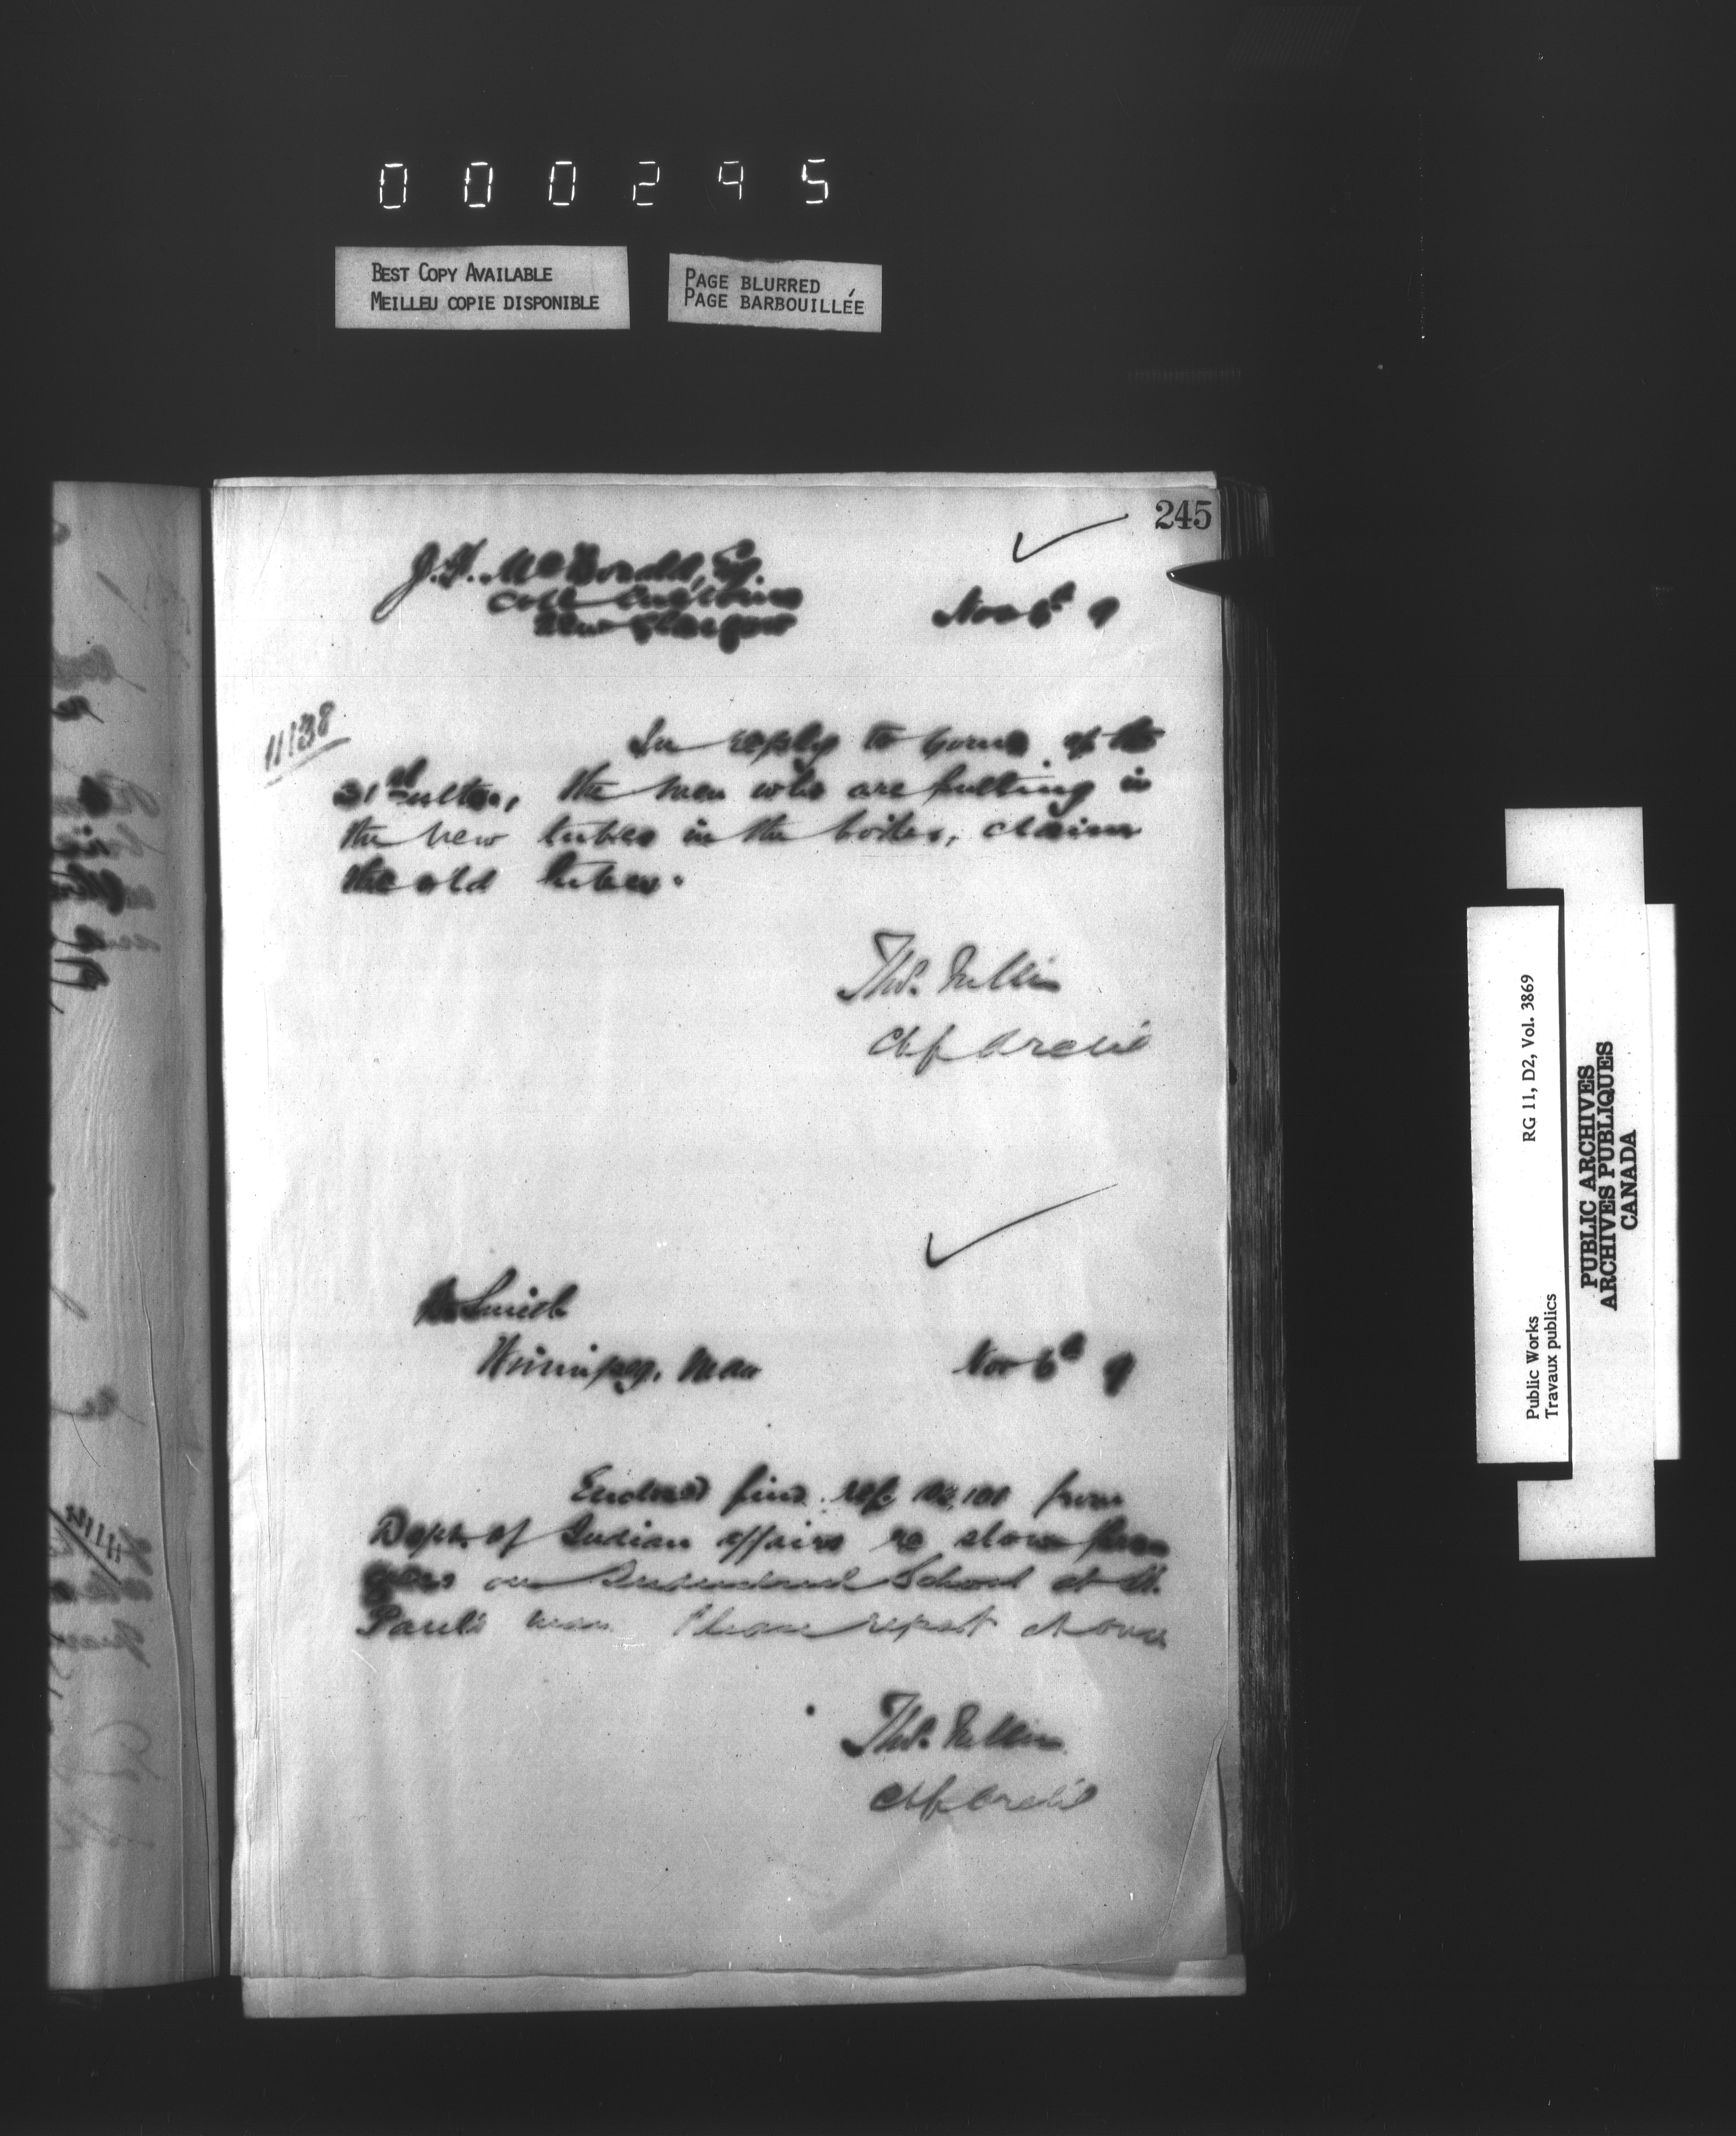 000295
BEST COPY AVAILABLE
MEILLEU COPIE DISPONIBLE
PAGE BLURRED
PAGE BARBOUILLÉE
245
J. H. McDonald, Esq.
Coll Customs
New Glasgow
Nov 6th 9
11138
In reply to yours of the
31st ulto., the men who are putting in
the new tubes in the boiler, claim
the old tubes.
Thos. Fuller
Chf Archt
D. Smith
Winnipeg, Man
Nov 6th 9
Enclosed find ref. from
Dept. of Indian affairs re slow pro
gress on Industrial School at St.
Paul's Man. Please report at once
Thos. Fuller
Chf Archt
RG 11, D2, Vol. 3869
Public Works
Travaux publics
PUBLIC ARCHIVES
ARCHIVES PUBLIQUES
CANADA